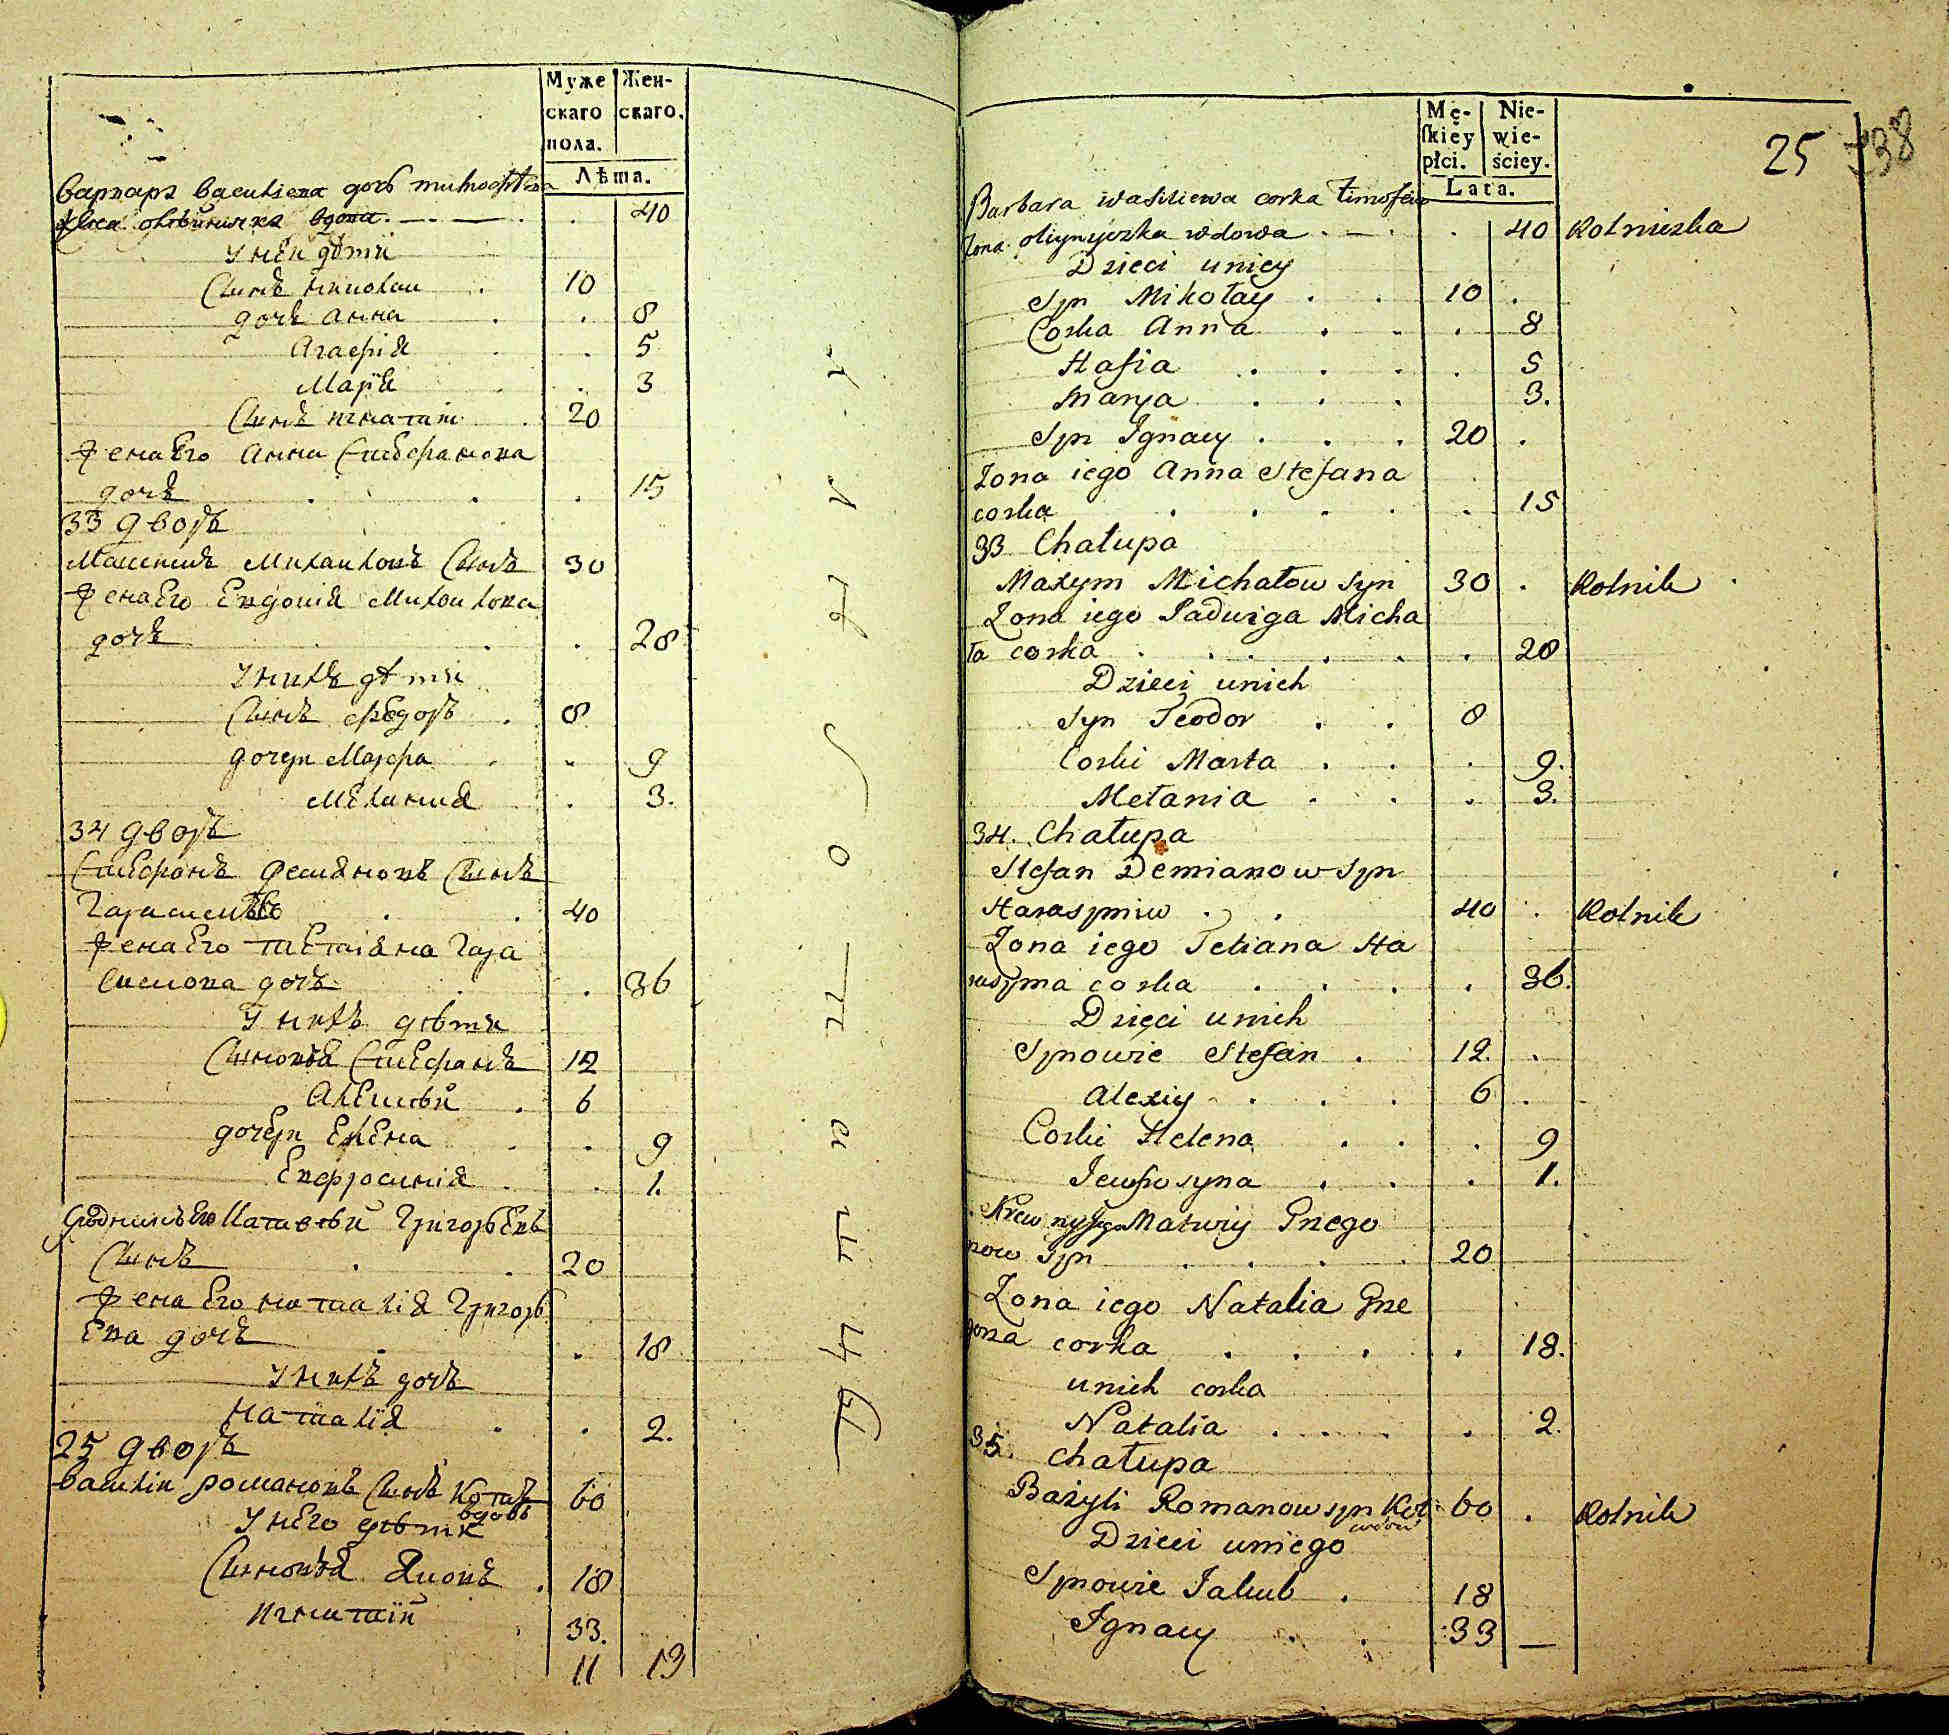 Муже
скаго
пола.
Жен-
скаго.
Лѣта.
варвара василиева дочь тимофѣева
жена олѣйничка вдова . — . — . . 40
У неи дѣти
Сынъ николаи . 10
дочь анна . . 8
Агафiя . . 5
Марïя . . 3
Сынъ игнатiи . 20
жена Его Анна Стефанова
дочь . . . 15
33 дворъ
Максимъ Михаиловъ Сынъ 30
жена Его Евдокiя Михаилова
дочь . . 28
У нихъ дѣти
Сынъ Федоръ . 8
дочери Марфа . . 9
Мелания . 3.
34 дворъ
Стефанъ Демяновъ Сынъ
. . 40
жена Его Татiана Гара
симова дочь . . 36
У нихъ дѣти
Сыновья Стефанъ 12
Алексѣй . 6
дочери Елена . . 9
Евфросинiя . . 1.
Матвѣй Григорьевъ
Сынъ . . 20
жена Его наталiя Григорь
Ева дочь . . 18
У нихъ дочь
Наталïя . . 2.
25 дворъ
василiи романовъ Сынъ Котъ 60
вдовъ
У него дѣти
Сыновья Яковъ . 18
игнатïй 33.
11 13
Mę-
ſkiey
płci.
Nie-
wie-
ściey.
Lata.
25 38
Barbara wasiliewa corka Timofeiw
żona oliynyczka wdowa . — . . 40 Rolniczka
Dzieci uniey
Syn Mikołay . . 10 .
Corka Anna . . . 8
Hafia . . . . . 5
Marya . . . 3.
Syn Ignacy . . . 20 .
Zona iego Anna Stefana
corka . . . . . 15
33 Chałupa
Maxym Michałow Syn 30 . Rolnik
Zona iego Jadwiga Micha
ła corka . . . . . . 28
Dzieci unich
Syn Teodor . . 8
Corki Marta . . . 9.
Mełania . . . 3.
34. Chałupa
Stefan Demianow Syn
Harasymiw . . 40 . Rolnik
Zona iego Tetiana Ha
rasyma corka . . . . . 36.
Dzieci unich
Synowie Stefan . 12. .
Alexiy . . . 6 .
Corki Helena . . . 9
Jewfrosyna . . . 1.
Krewny jego Matwiy Grzego
rzow Syn . . . . 20
Zona iego Natalia Grze
gorza corka . . . . . 18.
unich corka
Natalia . . . . . 2.
35. Chałupa
Bazyli Romanow syn Kot 60 . Rolnik
wdow
Dzieci uniego
Synowie Jakub . 18
Ignacy . . 33 —